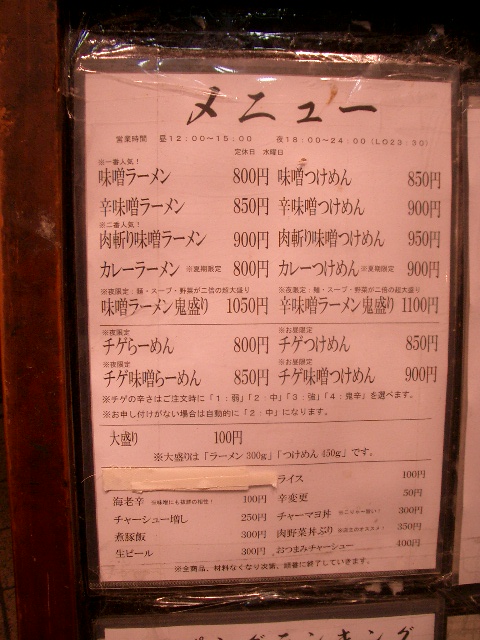 メニュー
営業時間 昼12:00~15:00 夜18:00~24:00(LO23:30)
定休日 水曜日
※一番人気!
味噌ラーメン 800円 味噌つけめん 850円
辛味噌ラーメン 850円 辛味噌つけめん 900円
※二番人気!
肉斬り味噌ラーメン 900円 肉斬り味噌つけめん 950円
カレーラーメン ※夏期限定 800円 カレーつけめん ※夏期限定 900円
※夜限定:麺・スープ・野菜が二倍の超大盛り ※夜限定:麺・スープ・野菜が二倍の超大盛り
味噌ラーメン鬼盛り 1050円 辛味噌ラーメン鬼盛り 1100円
※夜限定 ※お昼限定
チゲらーめん 800円 チゲつけめん 850円
※夜限定 ※お昼限定
チゲ味噌らーめん 850円 チゲ味噌つけめん 900円
※チゲの辛さはご注文時に「1:弱」「2:中」「3:強」「4:鬼辛」を選べます。
※お申し付けがない場合は自動的に「2:中」になります。
大盛り 100円
※大盛りは「ラーメン300g」「つけめん450g」です。
ライス 100円
海老辛 ※味噌にも抜群の相性! 100円 辛変更 50円
チャーシュー増し 250円 チャーマヨ丼 300円
煮豚飯 300円 肉野菜丼ぶり ※店主のオススメ! 350円
生ビール 300円 おつまみチャーシュー 400円
※全商品、材料なくなり次第、順番に終了していきます。